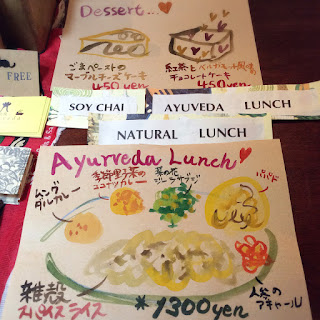 Dessert...♥
ごまペーストの
マーブルチーズケーキ
450 yen
紅茶とベルガモット風味
チョコレートケーキ
450 yen
FREE
SOY CHAI
AYUVEDA LUNCH
NATURAL LUNCH
Ayurveda Lunch♥
ムング
ダルカレー
季節野菜の
ココナツカレー
菜の花
サブジ
パパド
雑穀
スパイスライス
*1300yen
人参の
アチャール